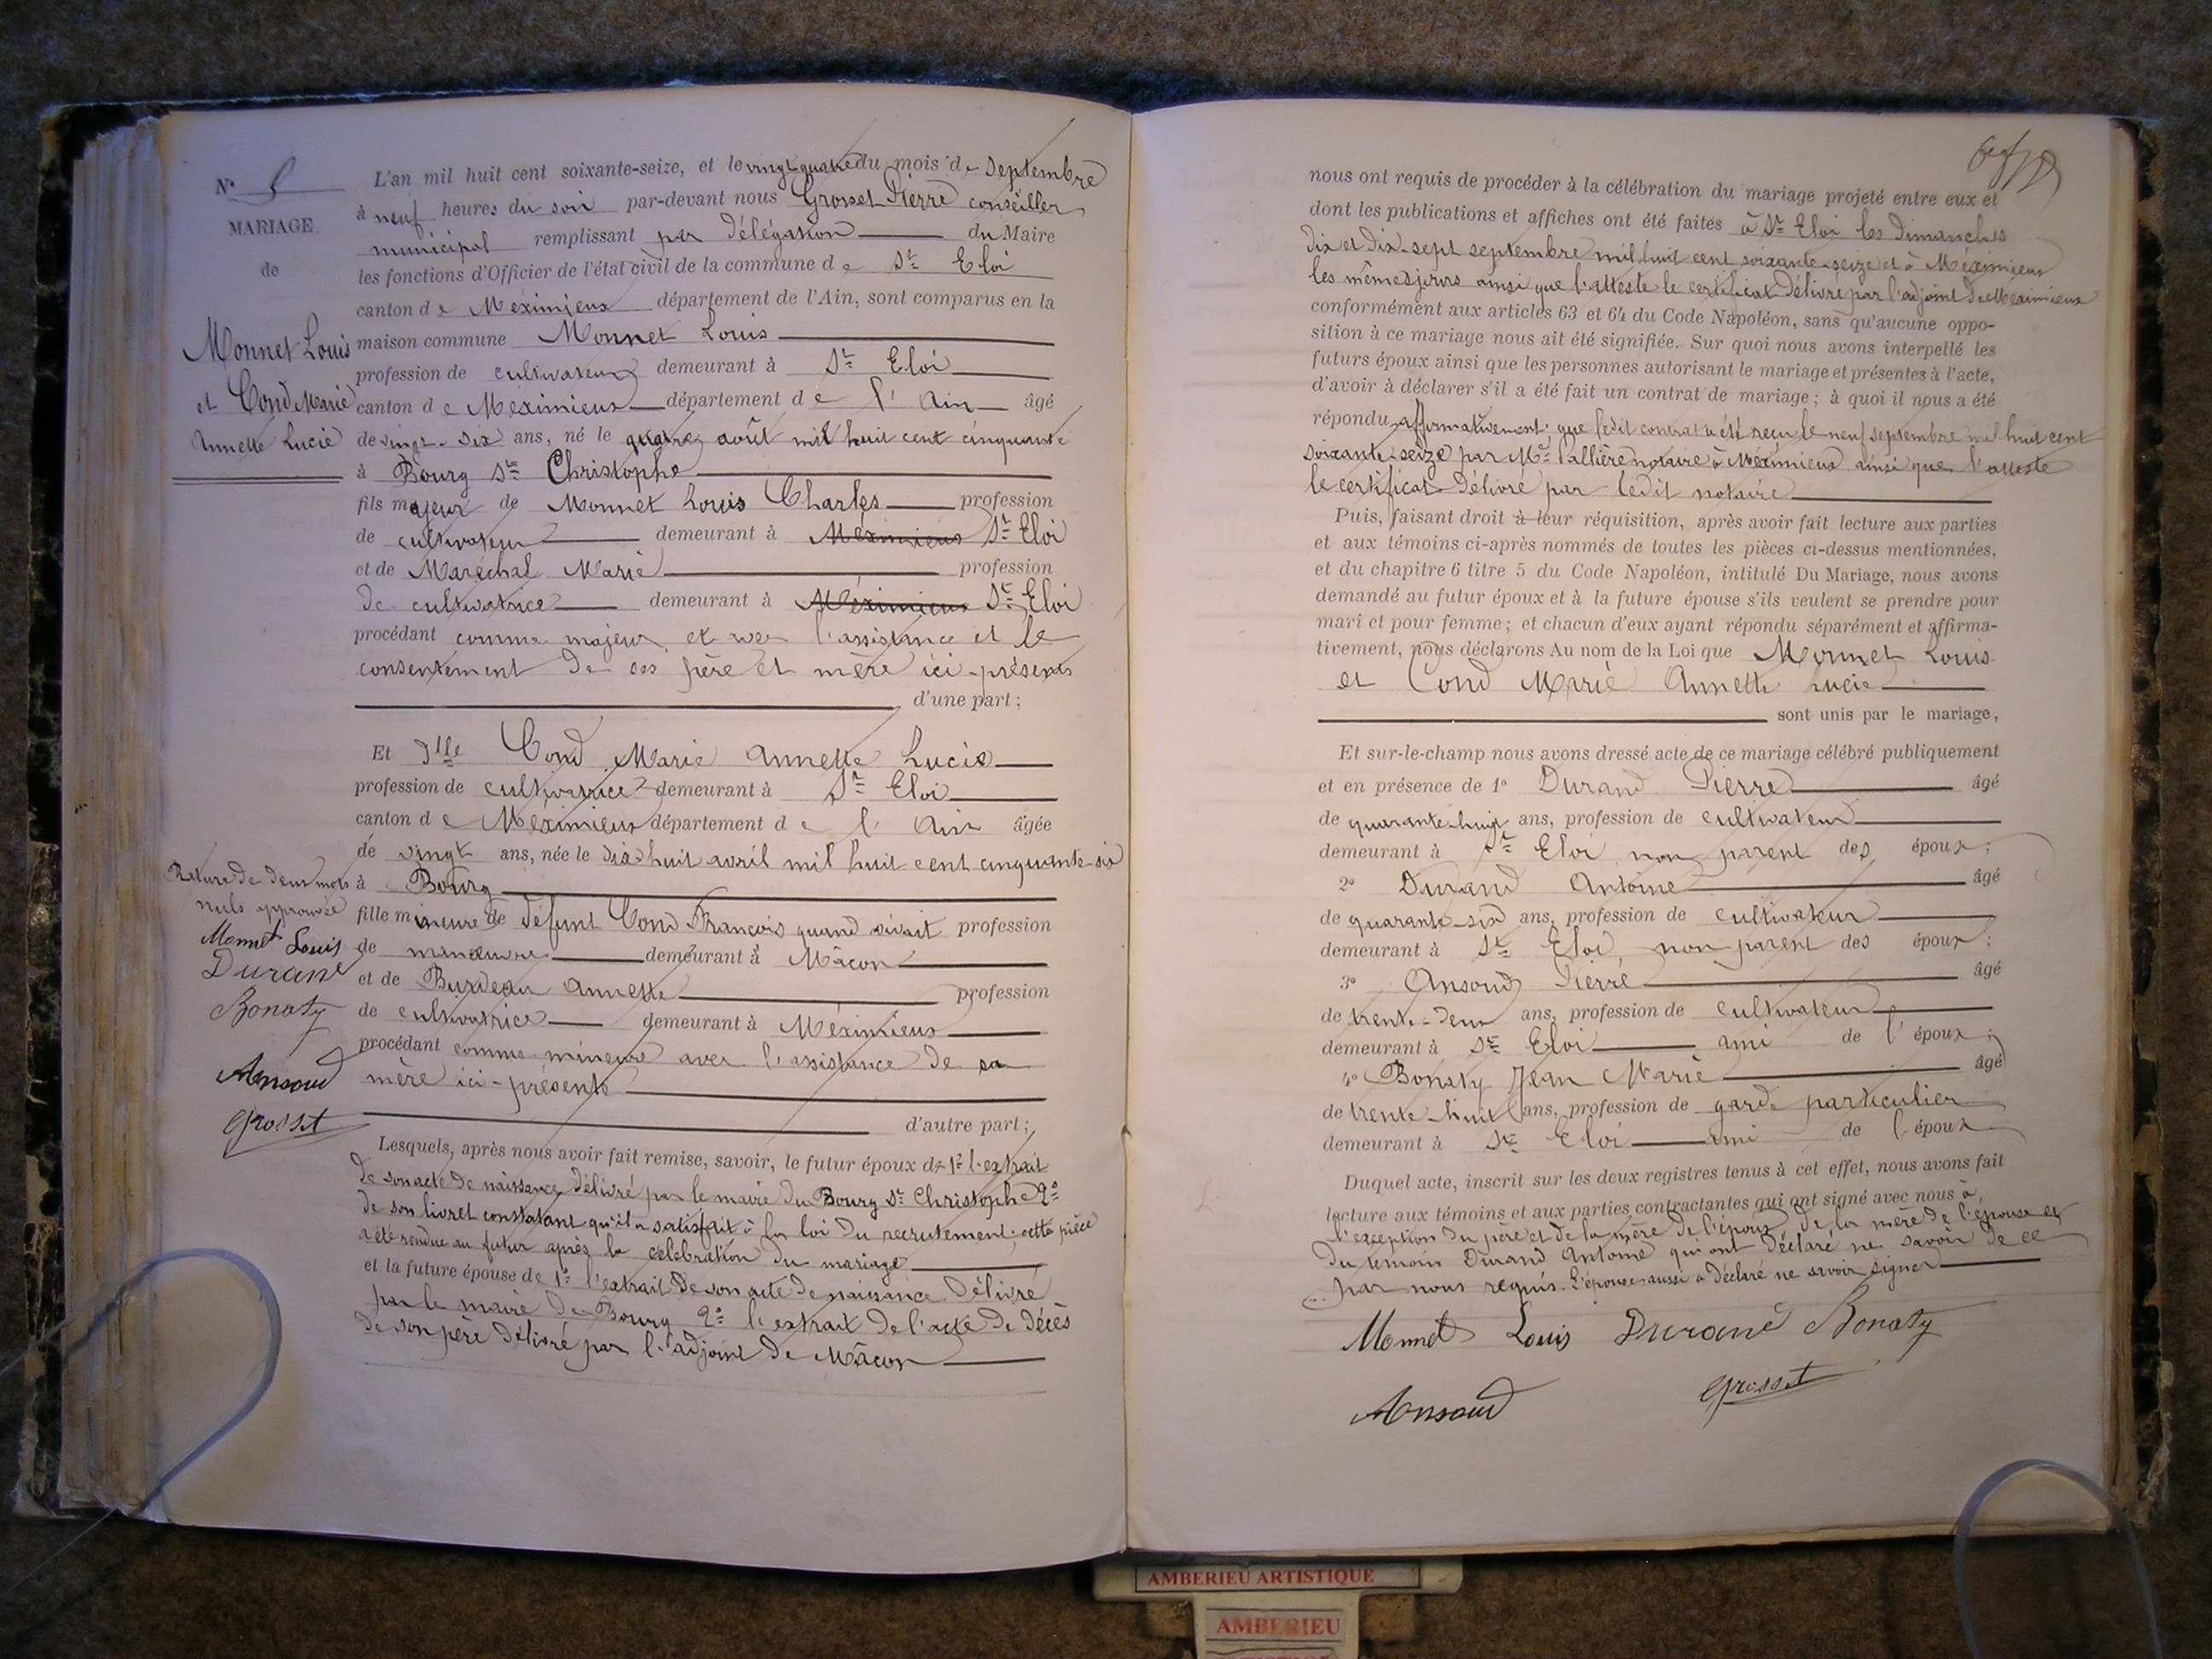 N° 5
MARIAGE
de
Monnet Louis
et Cond Marie
Annette Lucie
L'an mil huit cent soixante-seize, et le vingt quatre du mois de septembre
à neuf heures du soir par-devant nous Grosset Pierre conseiller
municipal remplissant par délégation du Maire
les fonctions d'Officier de l'état civil de la commune de St Eloi
canton de Meximieux département de l'Ain, sont comparus en la
maison commune Monnet Louis
profession de cultivateur demeurant à St Eloi
canton de Meximieux département de l'Ain âgé
de vingt-six ans, né le quatre août mil huit cent cinquante
à Bourg St Christophe
fils majeur de Monnet Louis Charles profession
de cultivateur demeurant à Meximieux St Eloi
et de Maréchal Marie profession
de cultivatrice demeurant à Méximieux St Eloi
procédant comme majeur et avec l'assistance et le
consentement de ses père et mère ici-présents
d'une part;
Et Dlle Cond Marie Annette Lucie
profession de cultivatrice demeurant à St Eloi
canton de Méximieux département de l'Ain âgée
de vingt ans, née le dix huit avril mil huit cent cinquante-six
à Bourg
fille mineure de défunt Cond François quand vivait profession
de manœuvre demeurant à Mâcon
et de Burdeau Annette profession
de cultivatrice demeurant à Méximieux
procédant comme mineure avec l'assistance de sa
mère ici-présente
d'autre part;
Rature de deux mots
nuls approuvée
Monnet Louis
Durand
Bonaty
Ansoud
Grosset
Lesquels, après nous avoir fait remise, savoir, le futur époux de 1° l'extrait
de son acte de naissance délivré par le maire du Bourg St Christophe 2°
de son livret constatant qu'il a satisfait à la loi du recrutement; cette pièce
a été rendue au futur après la célébration du mariage
et la future épouse de 1° l'extrait de son acte de naissance délivré
par le maire de Bourg 2° l'extrait de l'acte de décès
de son père délivré par l'adjoint de Mâcon
nous ont requis de procéder à la célébration du mariage projeté entre eux et
dont les publications et affiches ont été faites à St Eloi les dimanches
dix et dix-sept septembre mil huit cent soixante-seize et à Méximieux
les mêmes jours ainsi que l'atteste le certificat délivré par l'adjoint de Meximieux
conformément aux articles 63 et 64 du Code Napoléon, sans qu'aucune oppo-
sition à ce mariage nous ait été signifiée. Sur quoi nous avons interpellé les
futurs époux ainsi que les personnes autorisant le mariage et présentes à l'acte,
d'avoir à déclarer s'il a été fait un contrat de mariage; à quoi il nous a été
répondu affirmativement que ledit contrat a été reçu le neuf septembre mil huit cent
soixante-seize par Me Pallière notaire à Méximieux ainsi que l'atteste
le certificat délivré par ledit notaire
Puis, faisant droit à leur réquisition, après avoir fait lecture aux parties
et aux témoins ci-après nommés de toutes les pièces ci-dessus mentionnées,
et du chapitre 6 titre 5 du Code Napoléon, intitulé Du Mariage, nous avons
demandé au futur époux et à la future épouse s'ils veulent se prendre pour
mari et pour femme; et chacun d'eux ayant répondu séparément et affirma-
tivement, nous déclarons Au nom de la Loi que Monnet Louis
et Cond Marie Annette Lucie
sont unis par le mariage,
Et sur-le-champ nous avons dressé acte de ce mariage célébré publiquement
et en présence de 1° Durand Pierre âgé
de quarante-huit ans, profession de cultivateur
demeurant à St Eloi non parent des époux;
2° Durand Antoine âgé
de quarante-six ans, profession de cultivateur
demeurant à St Eloi, non parent des époux;
3° Ansoud Pierre âgé
de trente-deux ans, profession de cultivateur
demeurant à St Eloi ami de l'époux;
4° Bonaty Jean Marie âgé
de trente-huit ans, profession de garde particulier
demeurant à St Eloi ami de l'époux
Duquel acte, inscrit sur les deux registres tenus à cet effet, nous avons fait
lecture aux témoins et aux parties contractantes qui ont signé avec nous à
l'exception du père et de la mère de l'époux de la mère de l'épouse et
du témoin Durand Antoine qui ont déclaré ne savoir de ce
par nous requis. L'épouse aussi a déclaré ne savoir signer
Monnet Louis Durand Bonaty
Ansoud Grosset
AMBERIEU ARTISTIQUE
AMBERIEU